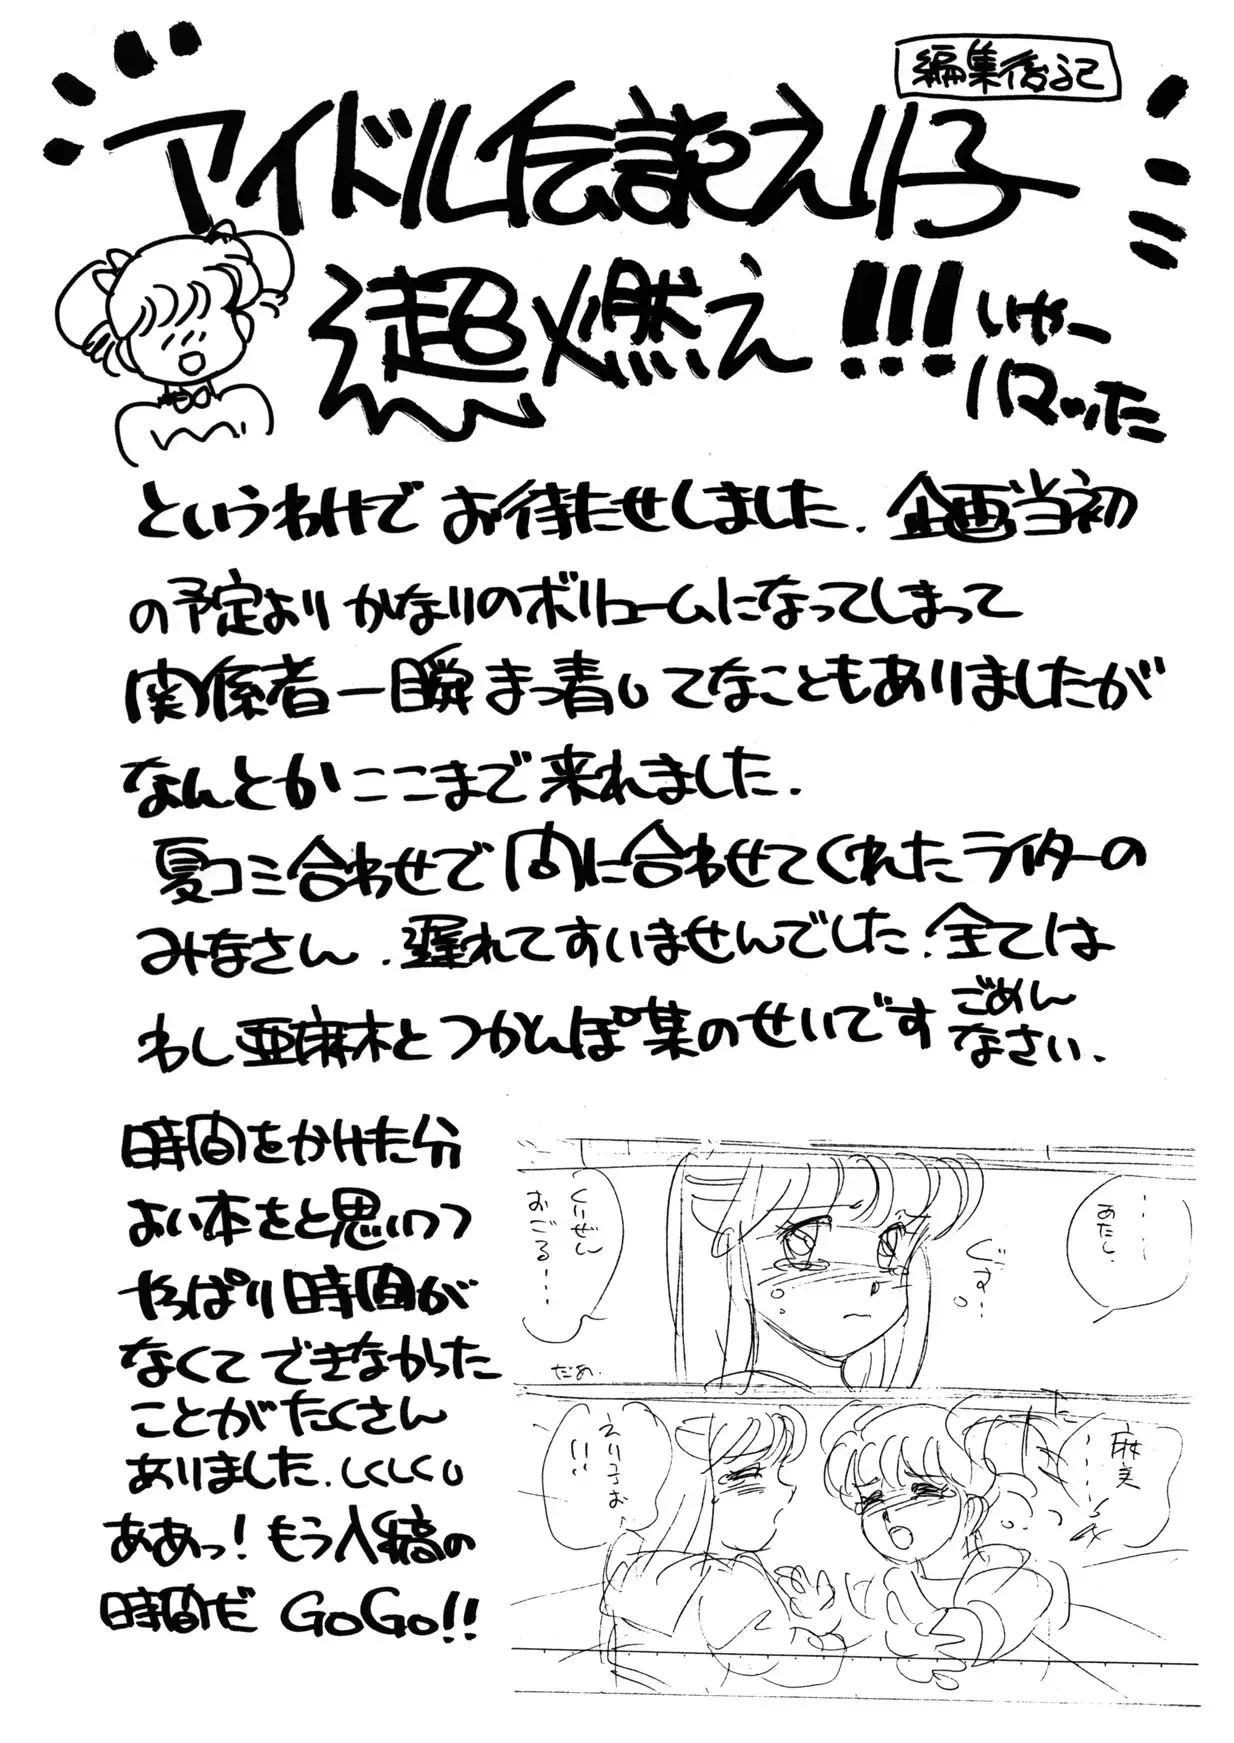 編集後記
アイドル伝説えり子
超燃え!!!
いやー
ハマった
というわけで お待たせしました. 企画当初
の予定より かなりのボリュームになってしまって
関係者一瞬まっ青してなこともありましたが
なんとか ここまで来れました.
夏コミ合わせで 間に合わせてくれたライターの
みなさん. 遅れてすいませんでした. 全ては
わし亜麻木とつかんぽ葉のせいです ごめん
なさい.
時間をかけた分
よい本をと思いつつ
やっぱり時間が
なくて できなかった
ことがたくさん
ありました. しくしくし
ああっ! もう入稿の
時間だ GoGo!!
……
あたし
ぐす…
くりぜん
おごる…
だぁ.
麻美
えり子ぉ
!!